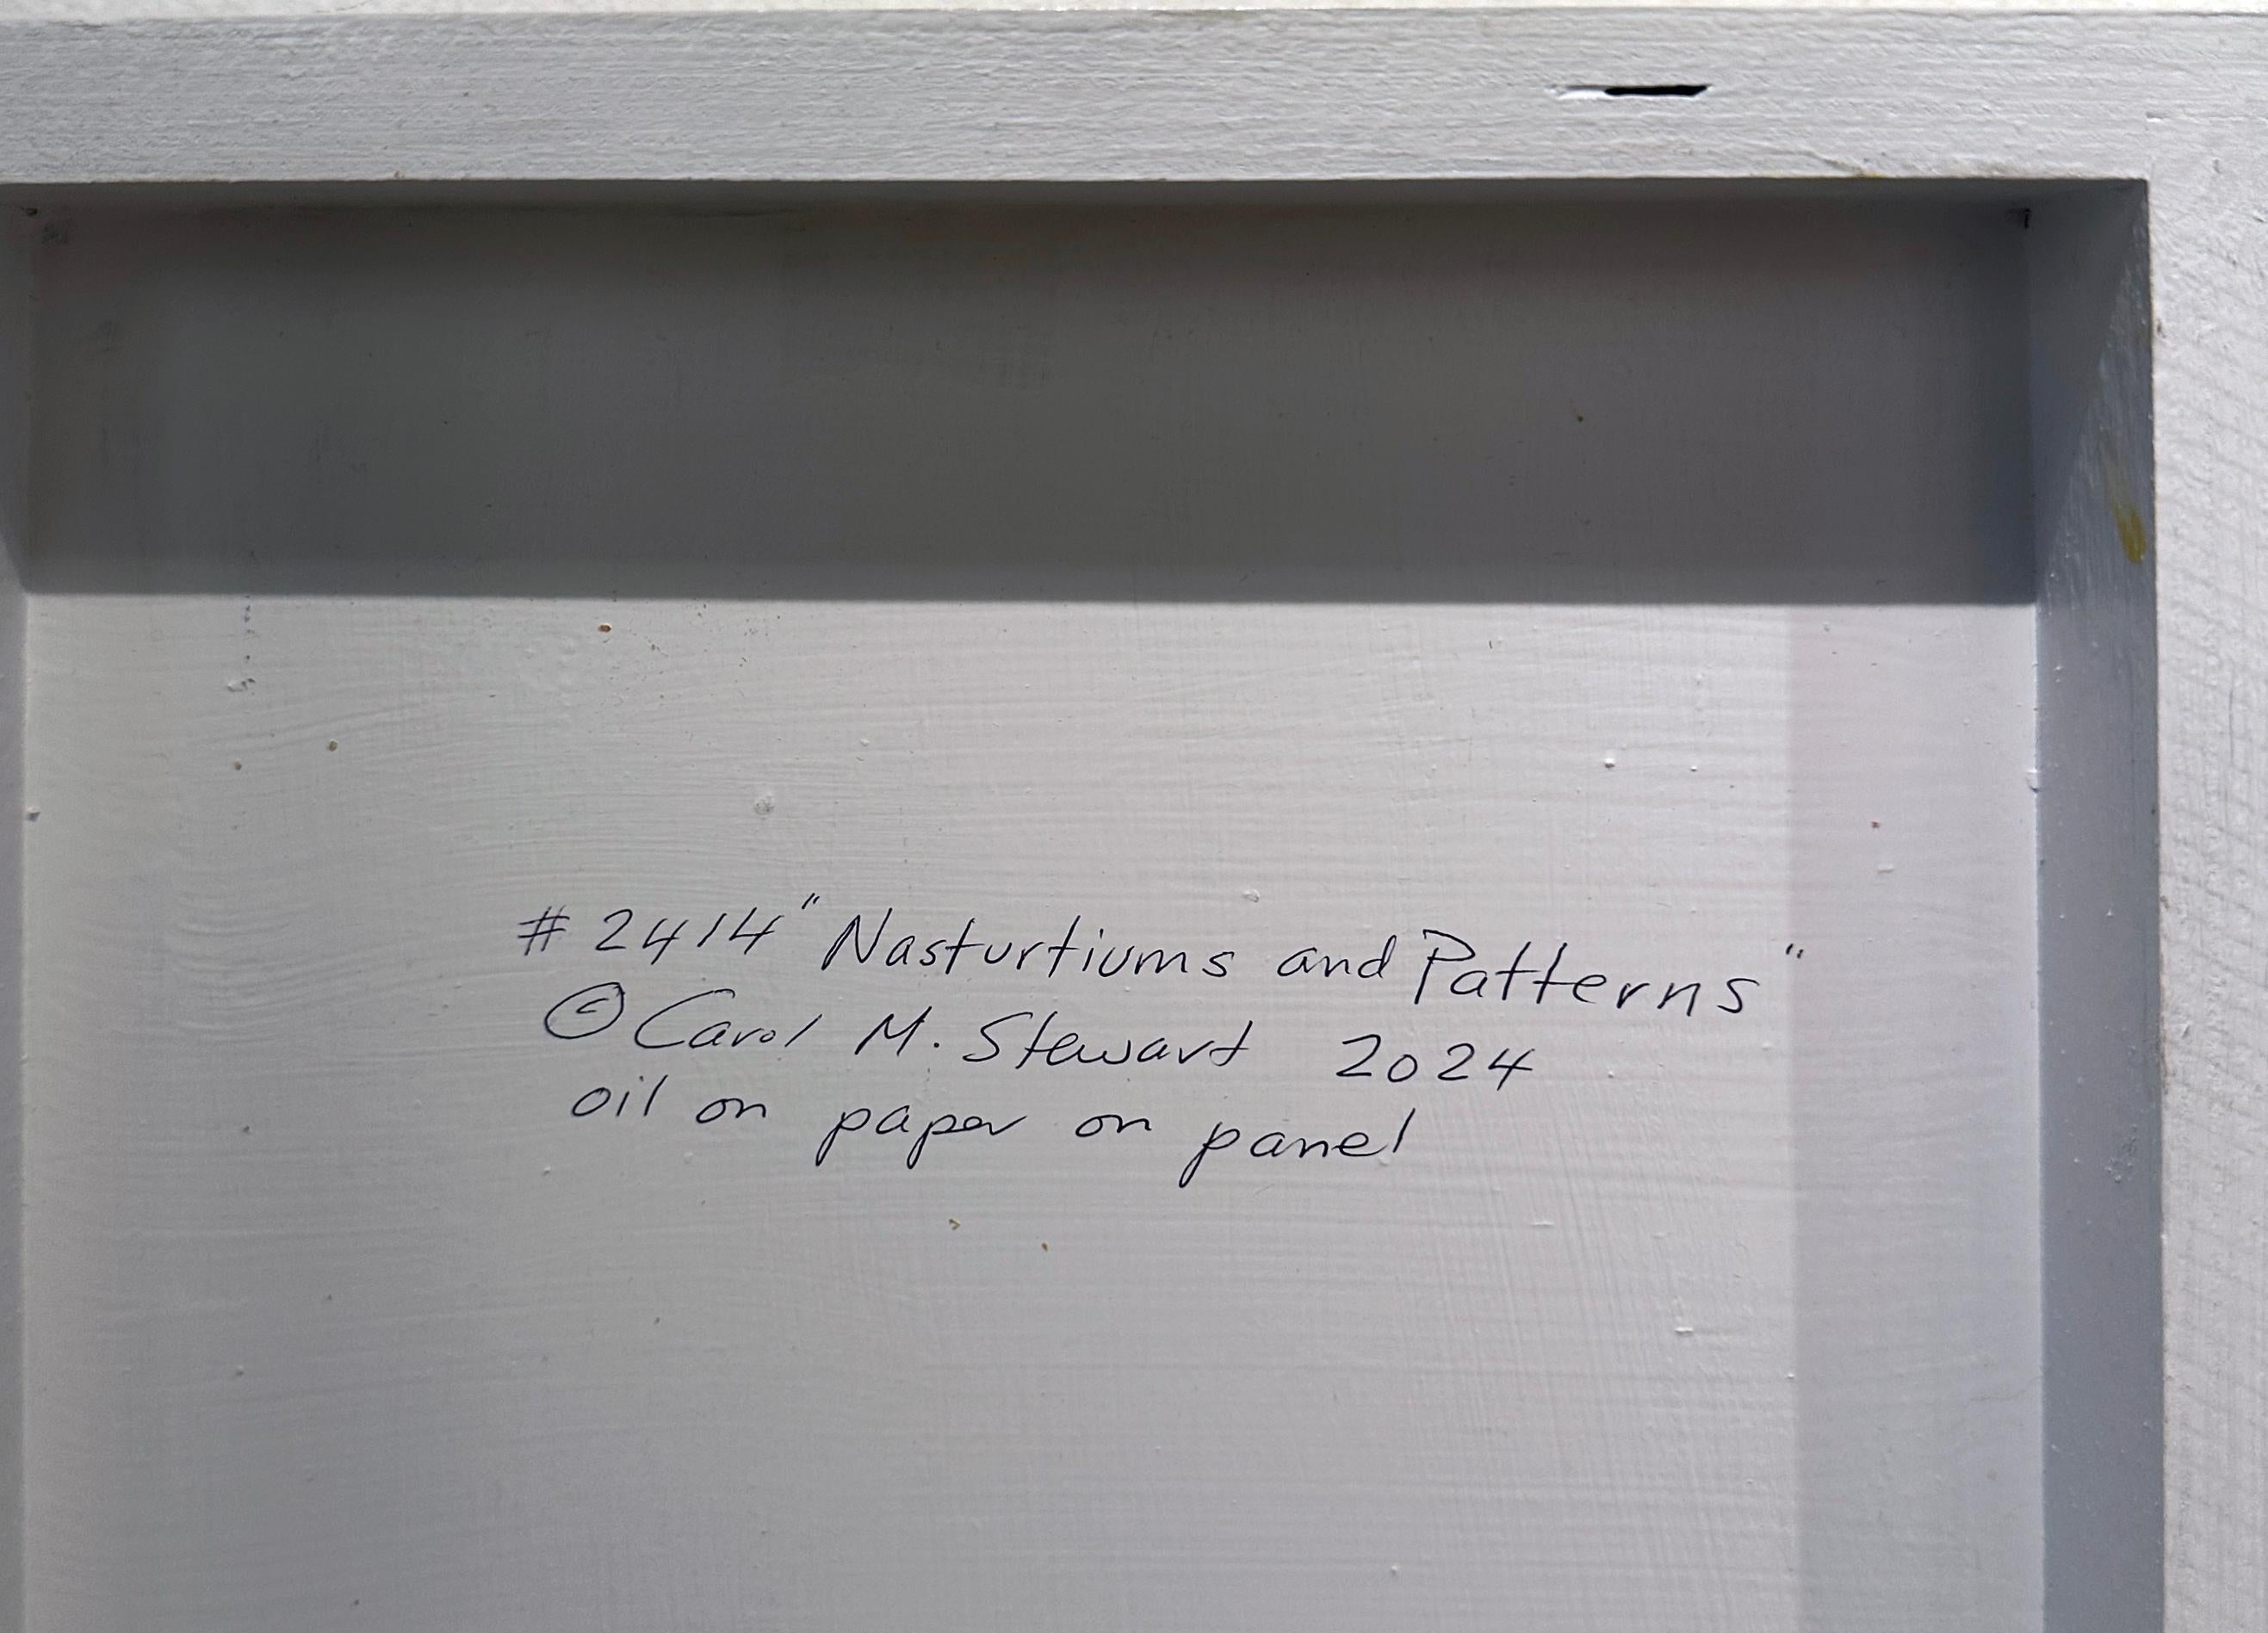 #2414 "Nasturtiums and Patterns"
© Carol M. Stewart 2024
oil on paper on panel